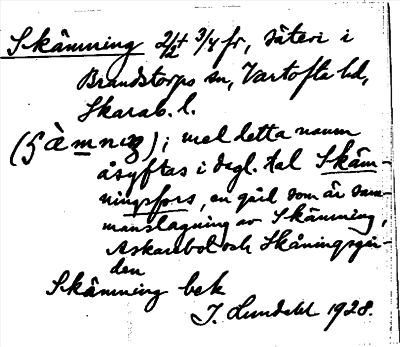 Skämning 2/2+3/4 fr, säteri i
Brandstorps sn, Vartofta hd,
Skarab. l.
(ʃàmnıŋ); med detta namn
åsyftas i dagl. tal Skäm-
ningsfors, en gård som är sam-
manslagning av Skämning,
Askarebol och Skåningsgår-
den
Skämning bek
J. Lundahl 1928.